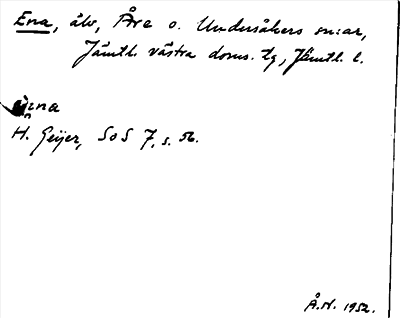 Ena, älv, Åre o. Undersåkers sn:ar,
Jämtl. västra doms. tg, Jämtl. l.
H. Geijer, SoS 7, s. 56.
Å.N. 1952.